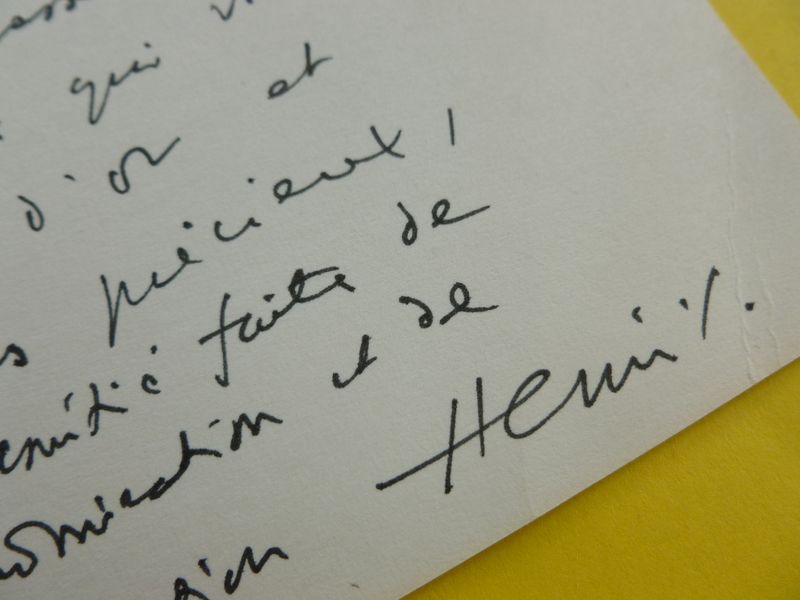 qui
d'or et
précieux !
amitié faite de
admiration et de
Henri